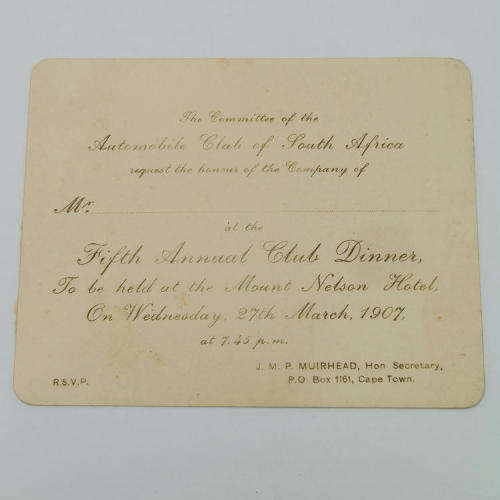 The Committee of the
Automobile Club of South Africa
request the honour of the Company of
Mr.
at the
Fifth Annual Club Dinner,
To be held at the Mount Nelson Hotel,
On Wednesday, 27th March, 1907,
at 7.45 p.m.
J. M. P. MUIRHEAD, Hon Secretary,
P.O. Box 1161, Cape Town.
R.S.V.P.